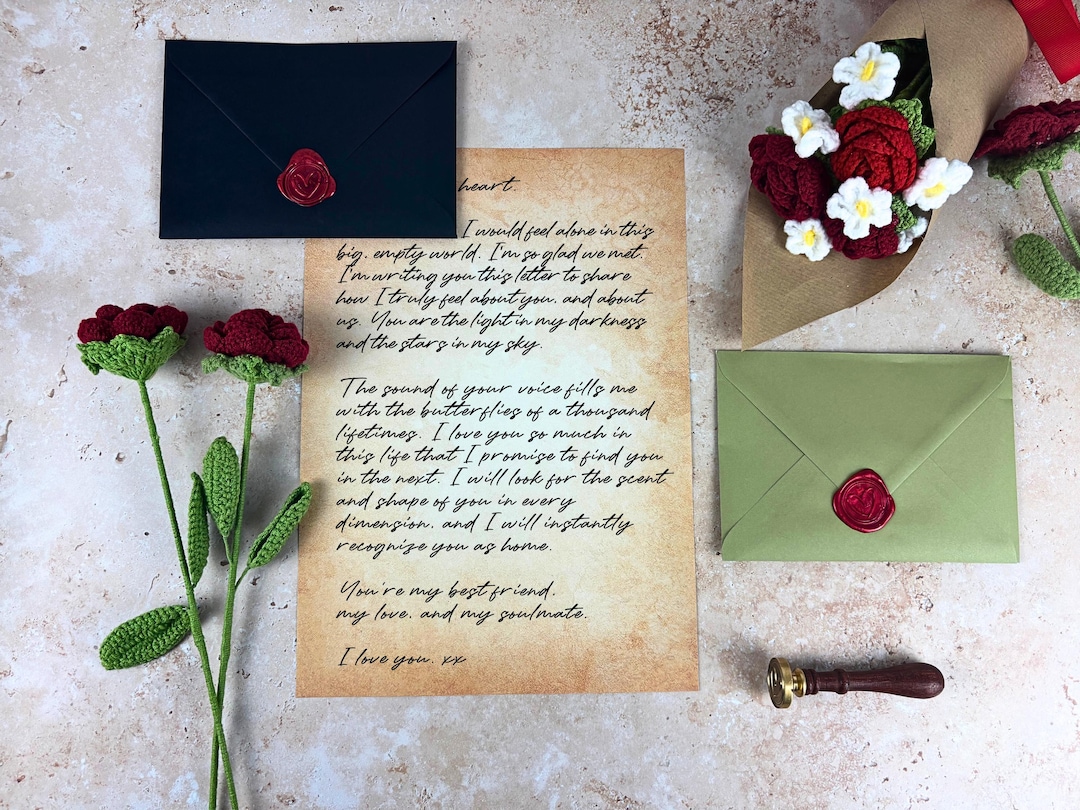 heart.
I would feel alone in this
big, empty world. I'm so glad we met.
I'm writing you this letter to share
how I truly feel about you, and about
us. You are the light in my darkness
and the stars in my sky.
The sound of your voice fills me
with the butterflies of a thousand
lifetimes. I love you so much in
this life that I promise to find you
in the next. I will look for the scent
and shape of you in every
dimension, and I will instantly
recognize you as home.
You're my best friend,
my love, and my soulmate.
I love you. xx